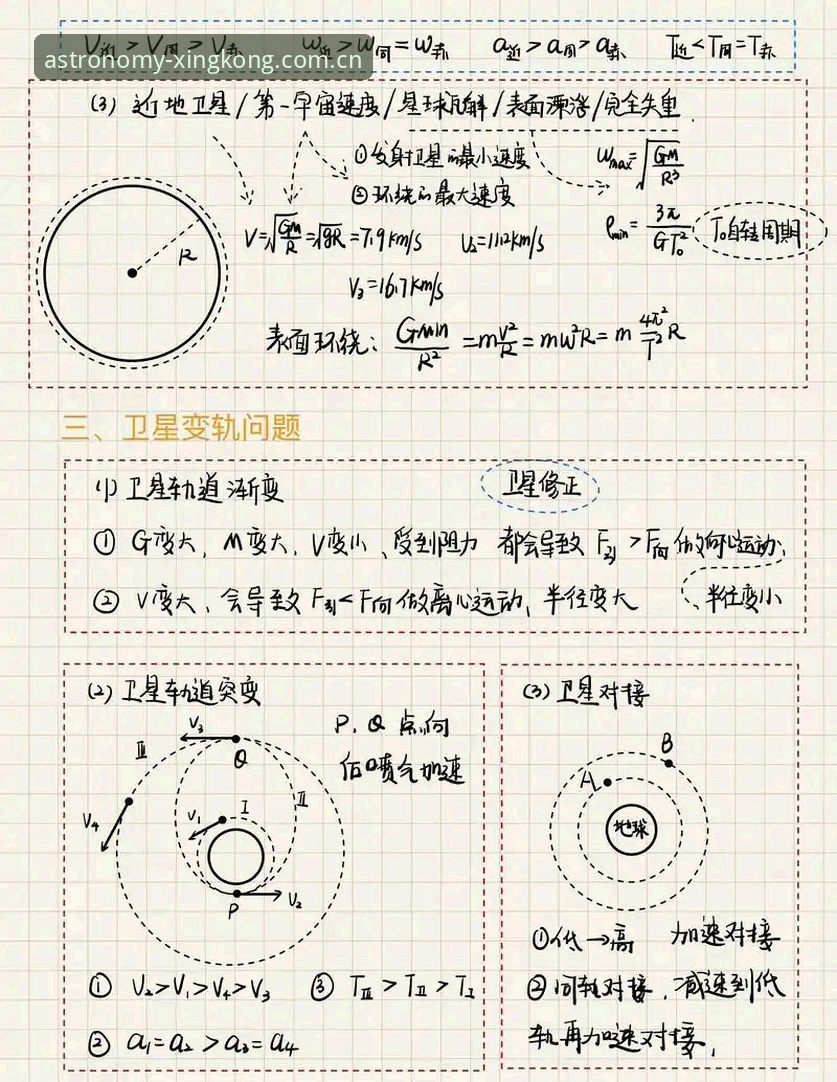 V近 > V同 > V赤 ω近 > ω同 = ω赤 a近 > a同 > a赤 T近 < T同 = T赤
astronomy-xingkong.com.cn
(3) 近地卫星/第一宇宙速度/星球瓦解/表面漂浮/完全失重
①发射卫星的最小速度
②环绕的最大速度
ωmax=√(GM/R³)
V=√(GM/R)=√gR=7.9km/s V₂=11.2km/s
ρmin=3π/GT₀² T₀自转周期
R
V₃=16.7km/s
表面环绕: GMm/R²=mV²/R=mω²R=m4π²/T²R
三、卫星变轨问题
(1) 卫星轨道渐变 卫星修正
① G变大, M变大, V变小、受到阻力 都会导致 F引 > F向 做向心运动,
半径变小
② V变大、会导致 F引 < F向 做离心运动, 半径变大
(2) 卫星轨道突变
P、Q 点向
后喷气加速
V₃
Ⅲ
Q
Ⅱ
V₄
V₁
Ⅰ
P
V₂
① V₂>V₁>V₄>V₃ ③ TⅢ > TⅡ > TⅠ
② a₁=a₂ > a₃=a₄
(3) 卫星对接
B
A
地球
①低→高 加速对接
②同轨对接, 减速到低
轨再加速对接,